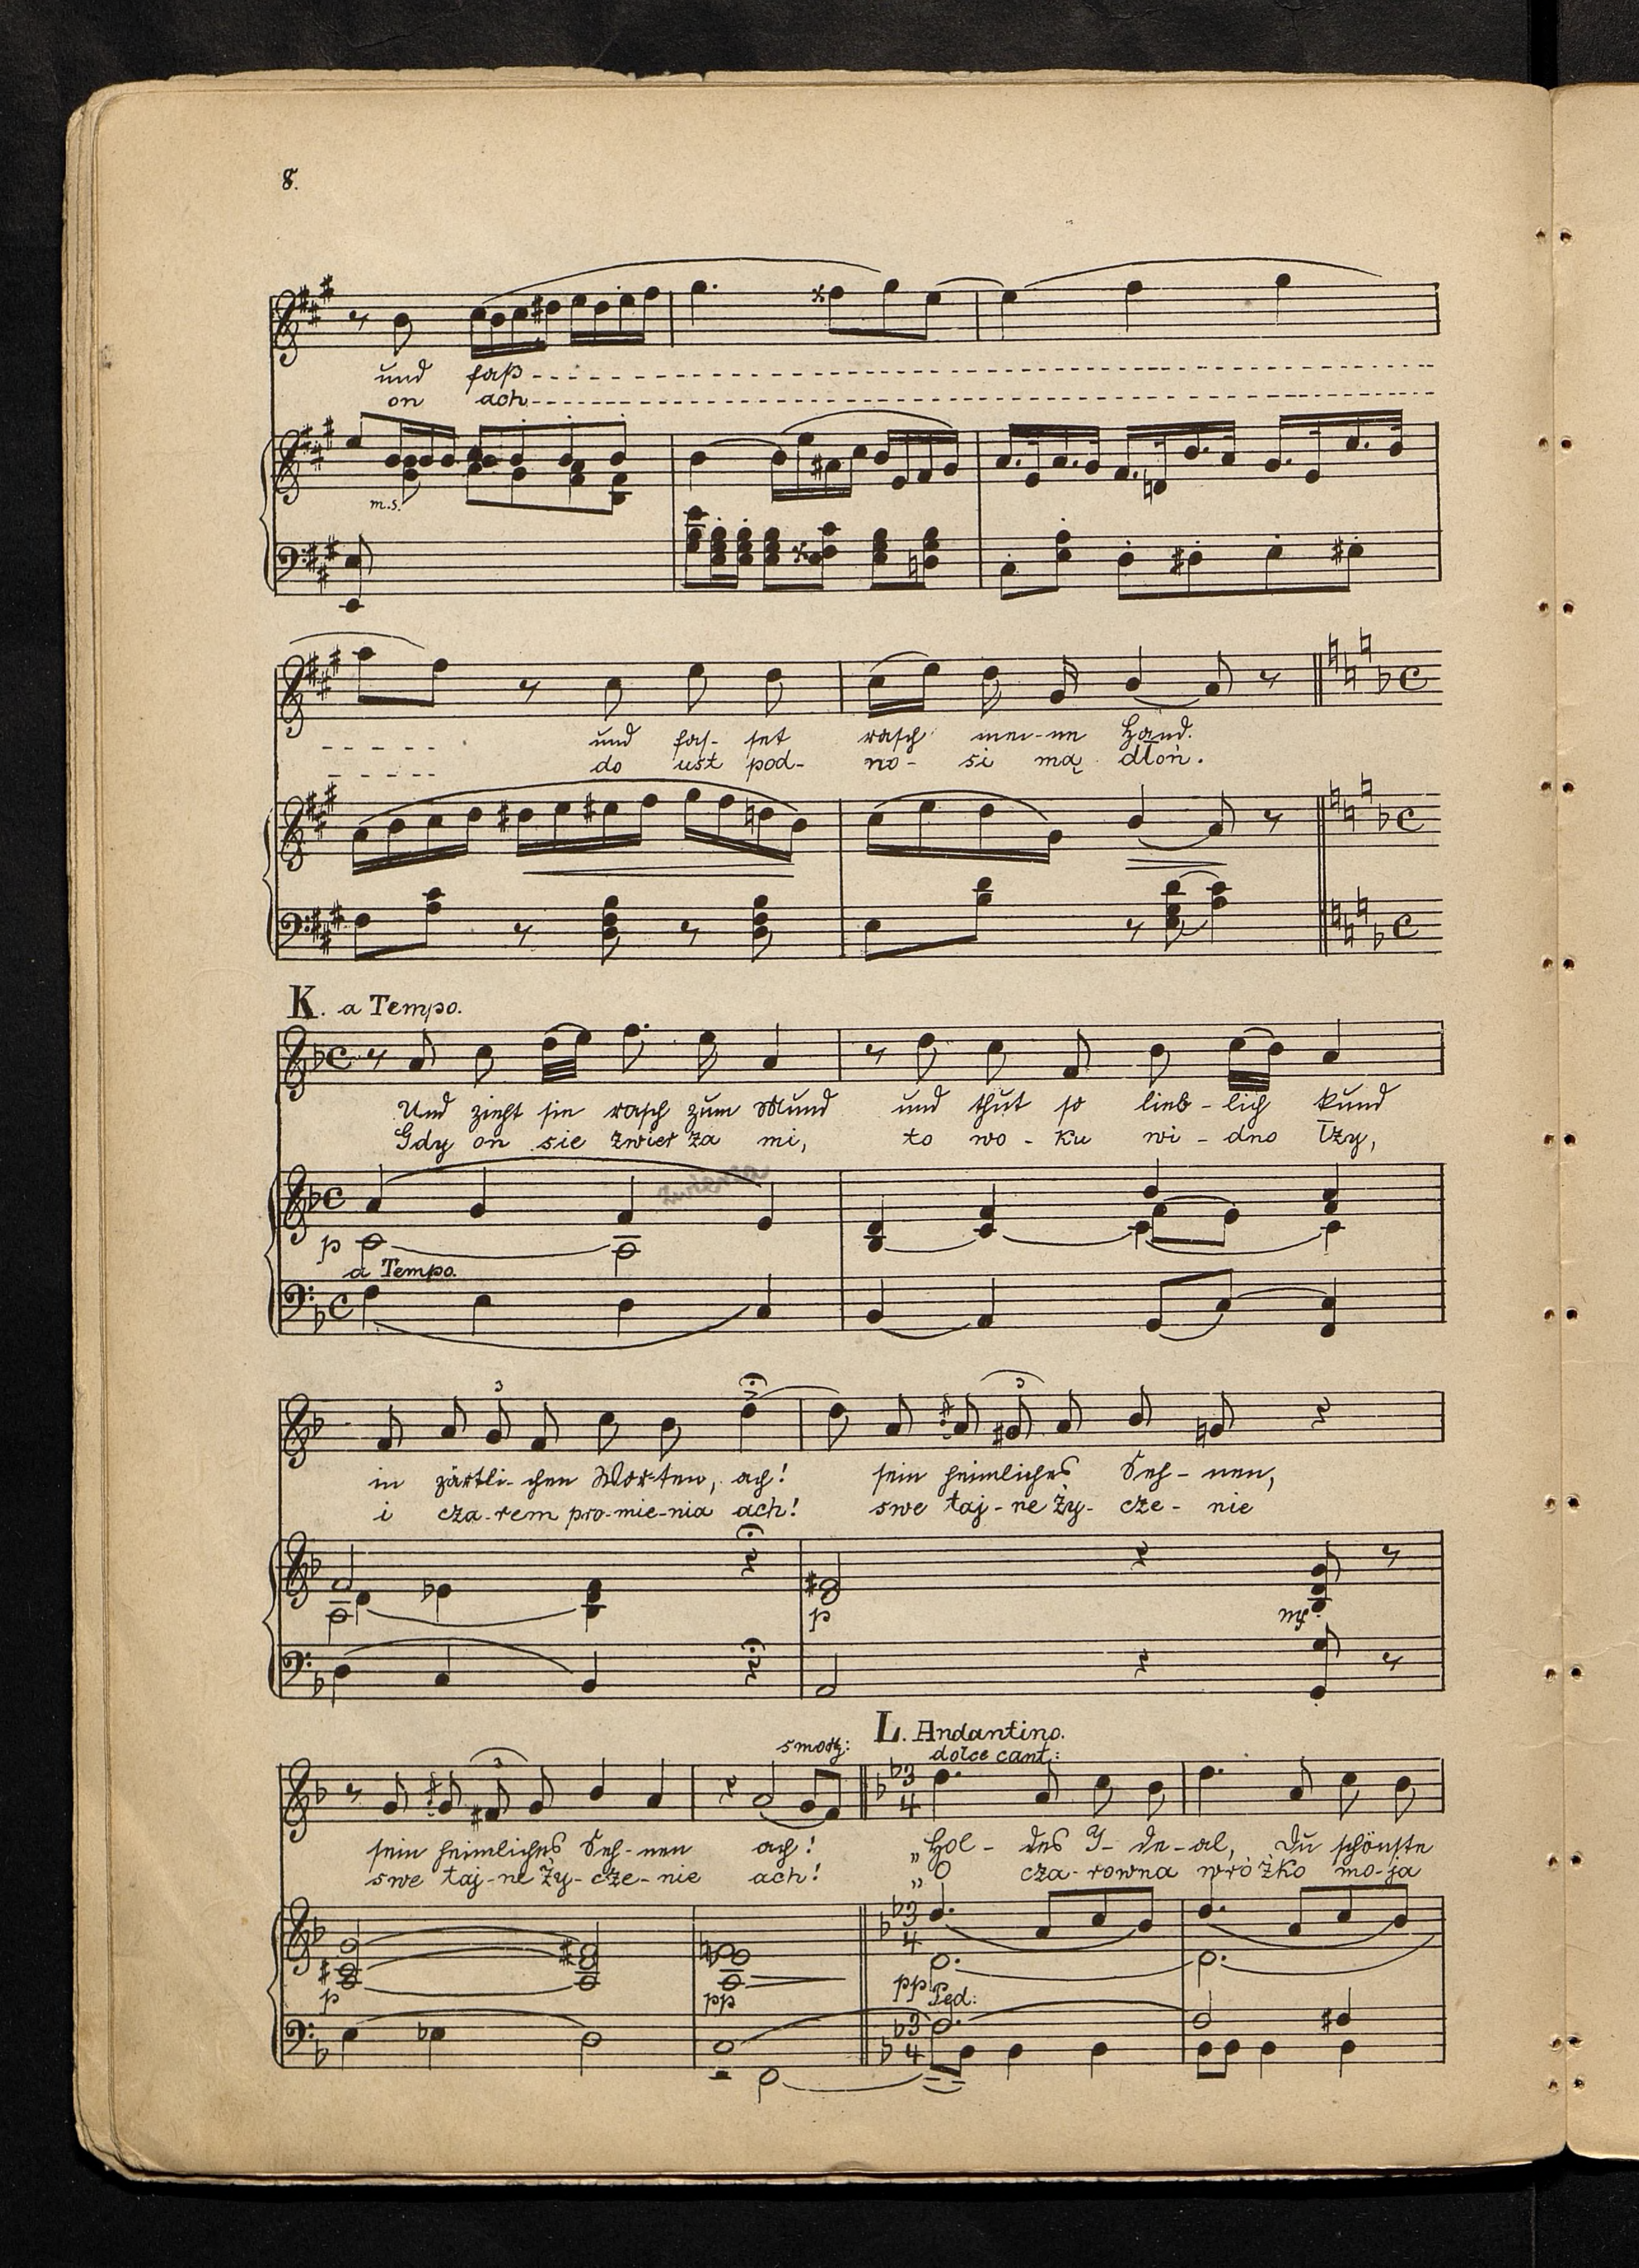 8.
und faß
on ach
m.s.
und fas- set rasch mei-ne Hand.
do ust pod- no- si mą dłoń.
K. a Tempo.
Und zieht sie rasch zum Mund und thut so lieb-lich kund
Gdy on sie zwier za mi, to wo-ku wi-dno łzy,
zwierza
p
a Tempo.
3 3
in zärtli-chen Wor-ten, ach! sein heimliches Seh-nen,
i cza-rem pro-mie-nia ach! swe taj-ne ży-cze-nie
p mf
L. Andantino.
smorz: dolce cant.:
3
sein heimliches Seh-nen ach! „Hol-des I-de-al, Du schönste
swe taj-ne ży-cze-nie ach! „O cza-rowna wróżko mo-ja
p pp pp Ped: